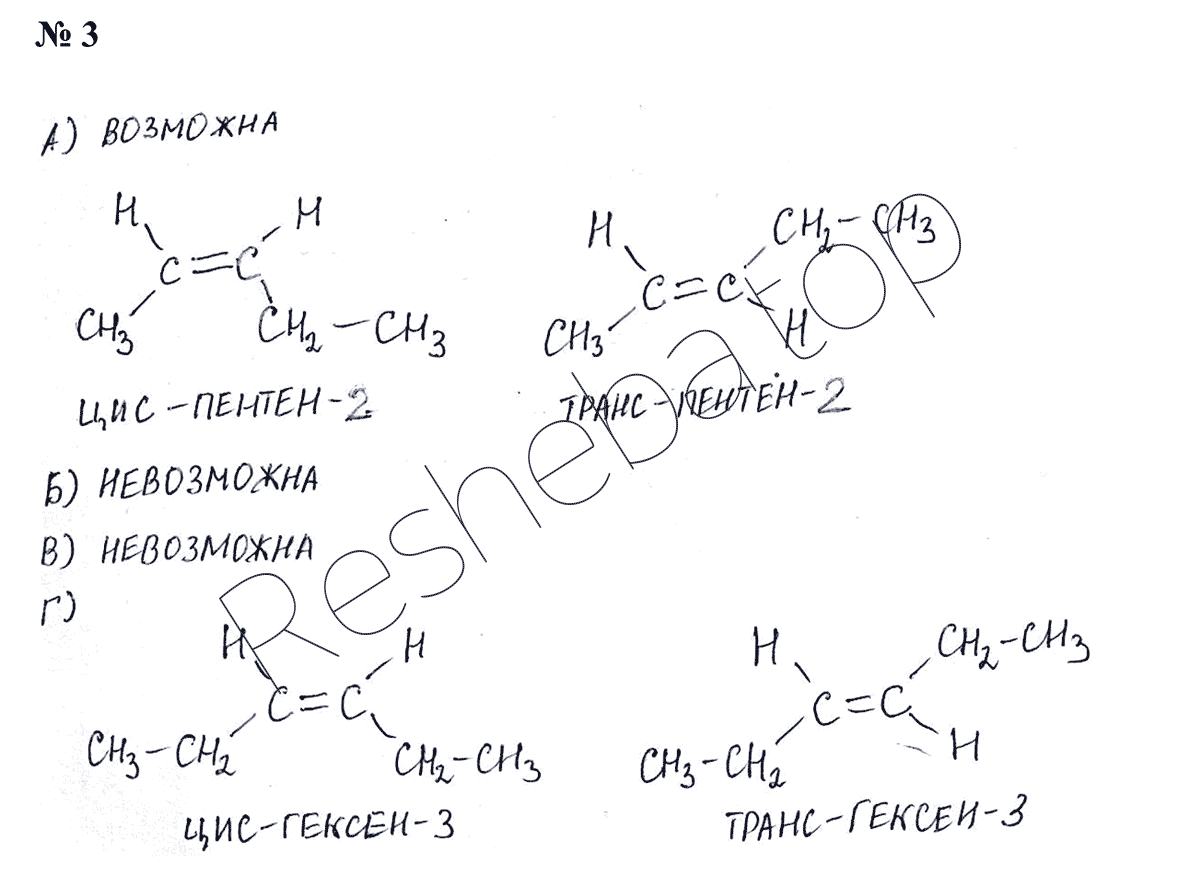 № 3
А) ВОЗМОЖНА
H H
C=C
CH₃ CH₂–CH₃
ЦИС-ПЕНТЕН-2
H CH₂–CH₃
C=C
CH₃ H
ТРАНС-ПЕНТЕН-2
Б) НЕВОЗМОЖНА
В) НЕВОЗМОЖНА
Г)
H H
C=C
CH₃–CH₂ CH₂–CH₃
ЦИС-ГЕКСЕН-3
H CH₂–CH₃
C=C
CH₃–CH₂ H
ТРАНС-ГЕКСЕН-3
Reshebatop